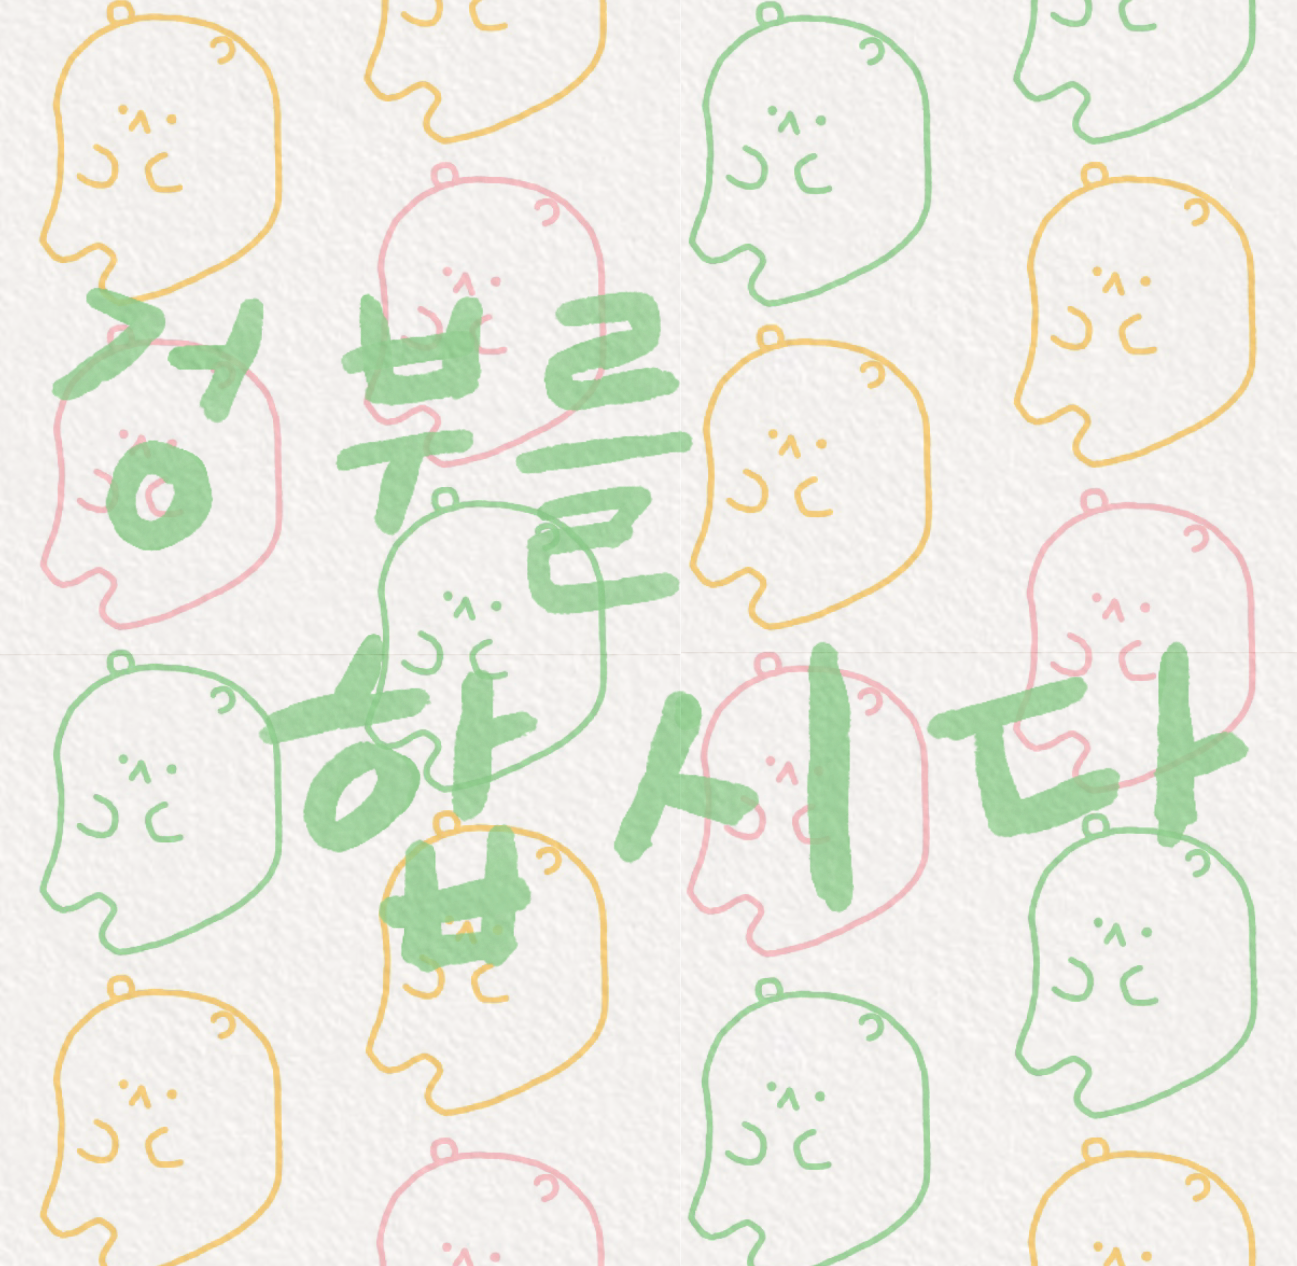 겅부를
합시다